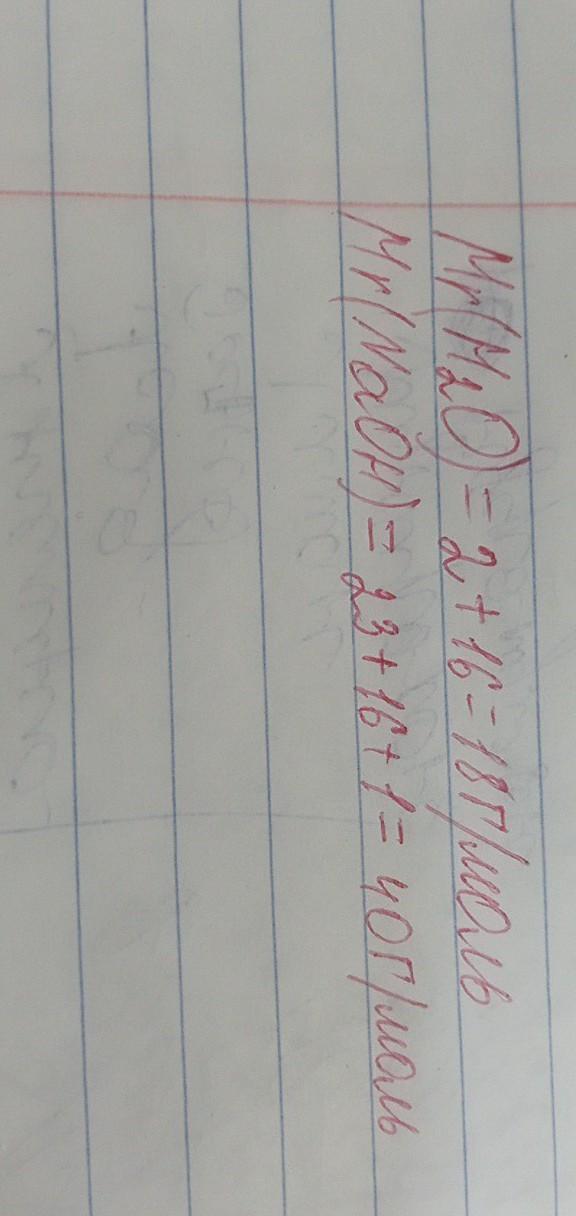 Mr(H₂O) = 2 + 16 = 18 г/моль
Mr(NaOH) = 23 + 16 + 1 = 40 г/моль